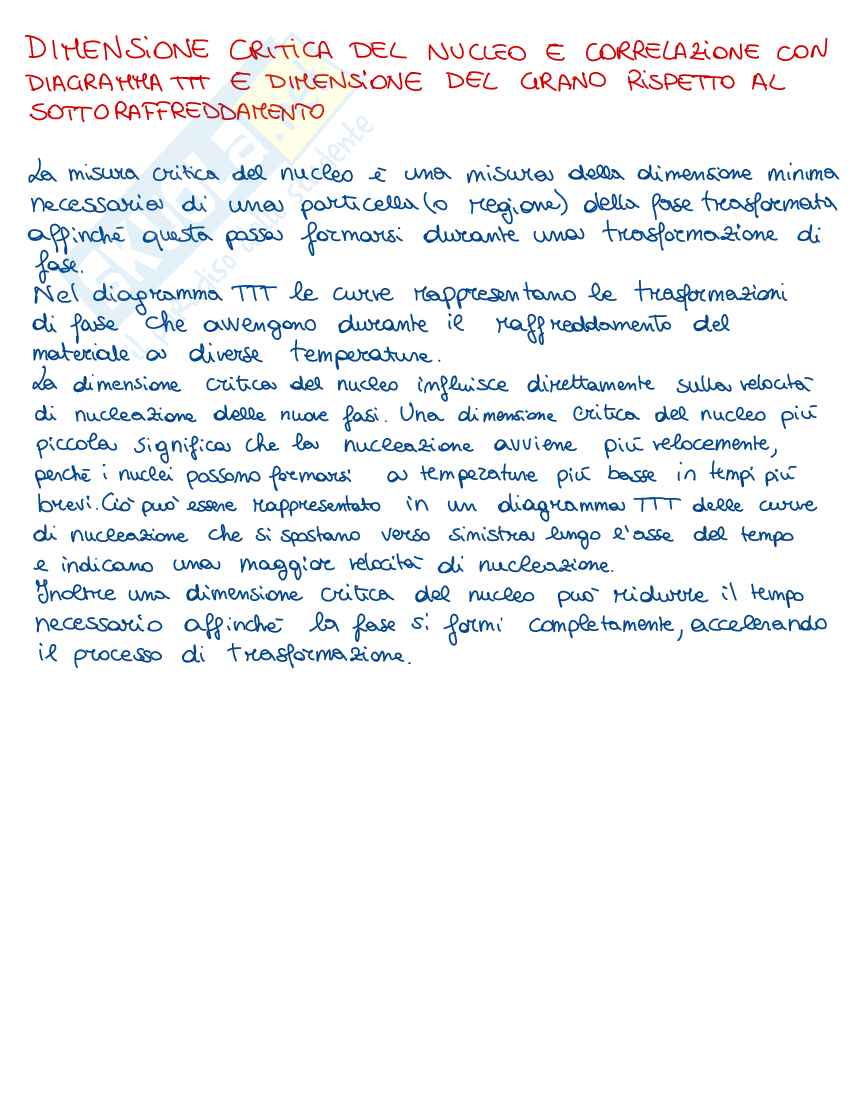 DIMENSIONE CRITICA DEL NUCLEO E CORRELAZIONE CON
DIAGRAMMA TTT E DIMENSIONE DEL GRANO RISPETTO AL
SOTTORAFFREDDAMENTO
La misura critica del nucleo è una misura della dimensione minima
necessaria di una particella (o regione) della fase trasformata
affinchè questa possa formarsi durante una trasformazione di
fase.
Nel diagramma TTT le curve rappresentano le trasformazioni
di fase che avvengono durante il raffreddamento del
materiale a diverse temperature.
La dimensione critica del nucleo influisce direttamente sulla velocità
di nucleazione delle nuove fasi. Una dimensione critica del nucleo più
piccola significa che la nucleazione avviene più velocemente,
perchè i nuclei possono formarsi a temperature più basse in tempi più
brevi. Ciò può essere rappresentato in un diagramma TTT delle curve
di nucleazione che si spostano verso sinistra lungo l'asse del tempo
e indicano una maggior velocità di nucleazione.
Inoltre una dimensione critica del nucleo può ridurre il tempo
necessario affinchè la fase si formi completamente, accelerando
il processo di trasformazione.